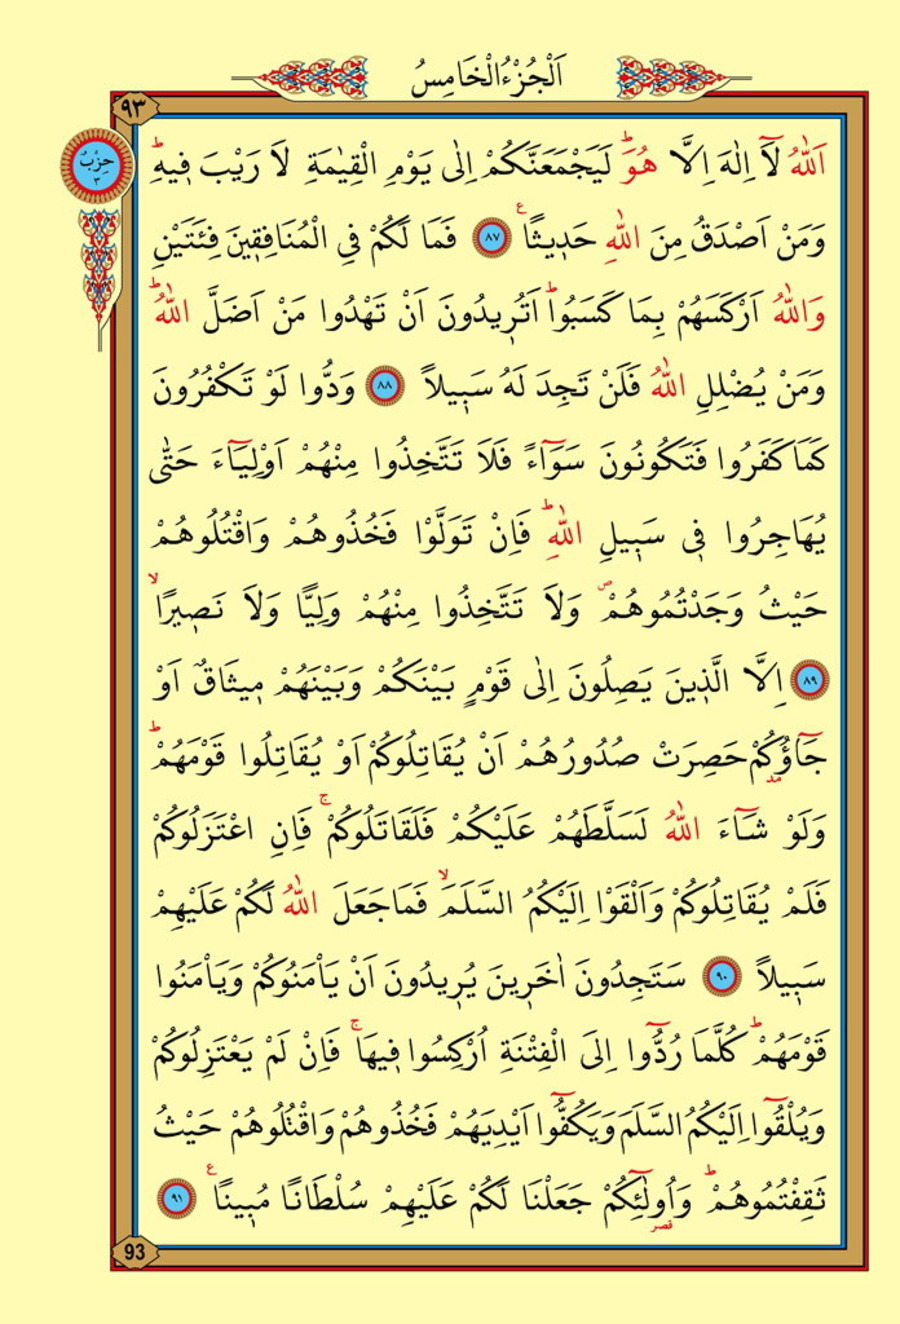 اَلْجُزْءُ الْخَامِسُ
٩٣
حِزْبٌ
٣
اَللّٰهُ لَٓا اِلٰهَ اِلَّا هُوَۜ لَيَجْمَعَنَّكُمْ اِلٰى يَوْمِ الْقِيٰمَةِ لَا رَيْبَ ف۪يهِۜ
وَمَنْ اَصْدَقُ مِنَ اللّٰهِ حَد۪يثًاۚ ﴿٨٧﴾ فَمَا لَكُمْ فِي الْمُنَافِق۪ينَ فِئَتَيْنِ
وَاللّٰهُ اَرْكَسَهُمْ بِمَا كَسَبُواۜ اَتُر۪يدُونَ اَنْ تَهْدُوا مَنْ اَضَلَّ اللّٰهُۜ
وَمَنْ يُضْلِلِ اللّٰهُ فَلَنْ تَجِدَ لَهُ سَب۪يلًا ﴿٨٨﴾ وَدُّوا لَوْ تَكْفُرُونَ
كَمَا كَفَرُوا فَتَكُونُونَ سَوَٓاءً فَلَا تَتَّخِذُوا مِنْهُمْ اَوْلِيَٓاءَ حَتّٰى
يُهَاجِرُوا ف۪ي سَب۪يلِ اللّٰهِۜ فَاِنْ تَوَلَّوْا فَخُذُوهُمْ وَاقْتُلُوهُمْ
حَيْثُ وَجَدْتُمُوهُمْۖ وَلَا تَتَّخِذُوا مِنْهُمْ وَلِيًّا وَلَا نَص۪يرًاۙ
﴿٨٩﴾ اِلَّا الَّذ۪ينَ يَصِلُونَ اِلٰى قَوْمٍ بَيْنَكُمْ وَبَيْنَهُمْ م۪يثَاقٌ اَوْ
جَٓاؤُ۫كُمْ حَصِرَتْ صُدُورُهُمْ اَنْ يُقَاتِلُوكُمْ اَوْ يُقَاتِلُوا قَوْمَهُمْۜ
وَلَوْ شَٓاءَ اللّٰهُ لَسَلَّطَهُمْ عَلَيْكُمْ فَلَقَاتَلُوكُمْۚ فَاِنِ اعْتَزَلُوكُمْ
فَلَمْ يُقَاتِلُوكُمْ وَاَلْقَوْا اِلَيْكُمُ السَّلَمَۙ فَمَا جَعَلَ اللّٰهُ لَكُمْ عَلَيْهِمْ
سَب۪يلًا ﴿٩٠﴾ سَتَجِدُونَ اٰخَر۪ينَ يُر۪يدُونَ اَنْ يَأْمَنُوكُمْ وَيَأْمَنُوا
قَوْمَهُمْۜ كُلَّمَا رُدُّٓوا اِلَى الْفِتْنَةِ اُرْكِسُوا ف۪يهَاۚ فَاِنْ لَمْ يَعْتَزِلُوكُمْ
وَيُلْقُٓوا اِلَيْكُمُ السَّلَمَ وَيَكُفُّٓوا اَيْدِيَهُمْ فَخُذُوهُمْ وَاقْتُلُوهُمْ حَيْثُ
ثَقِفْتُمُوهُمْۜ وَاُو۬لٰٓئِكُمْ جَعَلْنَا لَكُمْ عَلَيْهِمْ سُلْطَانًا مُب۪ينًا۟ ﴿٩١﴾
93